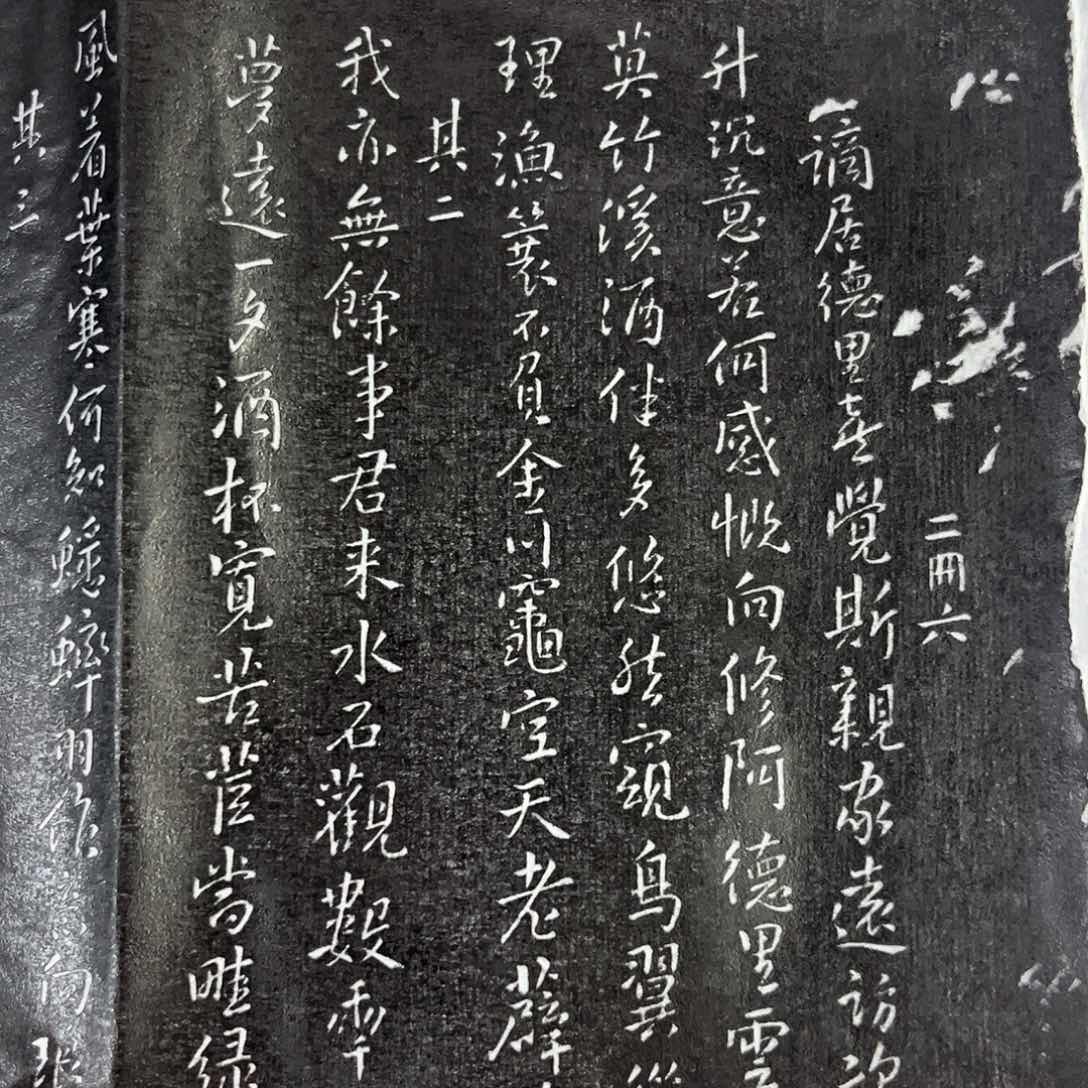 二冊六
謫居德里喜覺斯親家遠訪
升沉意若何感慨向修阿德里雲
莫竹溪酒伴多悠然窺鳥翼
理漁蓑不負金川竈空天老薜
其二
我亦無餘事君来水石觀數年
夢遠一夕酒杯寬苦苣當畦緑
風着葉寒何知蟋蟀羽 向
其三